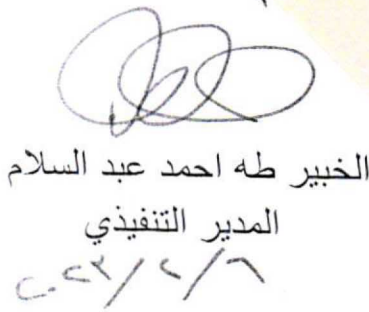 الخبير طه احمد عبد السلام
المدير التنفيذي
٢٠٢٣/٢/٦